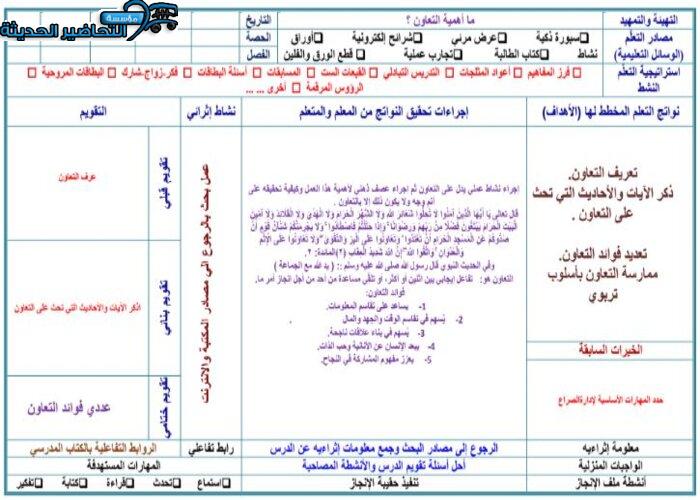 مؤسسة
التحاضير الحديثة
التهيئة والتمهيد
ما أهمية التعاون ؟
التاريخ
مصادر التعلم
(الوسائل التعليمية)
□سبورة ذكية □عرض مرئي □شرائح إلكترونية □أوراق
نشاط □كتاب الطالبة □تجارب عملية □ قطع الورق والفلين
الحصة
الفصل
استراتيجية التعلم
النشط
□ فرز المفاهيم □ أعواد المثلجات □ التدريس التبادلي □ القبعات الست □ المسابقات □ أسئلة البطاقات □ فكر-زواج-شارك □ البطاقات المروحية
□ الرؤوس المرقمة □ أخرى ... ...
نواتج التعلم المخطط لها (الأهداف)
إجراءات تحقيق النواتج من المعلم والمتعلم
نشاط إثرائي
التقويم
تعريف التعاون.
ذكر الآيات والأحاديث التي تحث
على التعاون .
تعديد فوائد التعاون.
ممارسة التعاون بأسلوب
تربوي
الخبرات السابقة
حدد المهارات الأساسية لإدارةالصراع
إجراء نشاط عملي يدل على التعاون ثم إجراء عصف ذهني لأهمية هذا العمل وكيفية تحقيقه على
أتم وجه ولا يكون ذلك إلا بالتعاون .
قال تعالى يَا أَيُّهَا الَّذِينَ آمَنُوا لَا تُحِلُّوا شَعَائِرَ اللَّهِ وَلَا الشَّهْرَ الْحَرَامَ وَلَا الْهَدْيَ وَلَا الْقَلَائِدَ وَلَا آمِّينَ
الْبَيْتَ الْحَرَامَ يَبْتَغُونَ فَضْلًا مِنْ رَبِّهِمْ وَرِضْوَانًا ۚ وَإِذَا حَلَلْتُمْ فَاصْطَادُوا ۚ وَلَا يَجْرِمَنَّكُمْ شَنَآنُ قَوْمٍ أَنْ
صَدُّوكُمْ عَنِ الْمَسْجِدِ الْحَرَامِ أَنْ تَعْتَدُوا ۘ وَتَعَاوَنُوا عَلَى الْبِرِّ وَالتَّقْوَىٰ ۖ وَلَا تَعَاوَنُوا عَلَى الْإِثْمِ
وَالْعُدْوَانِ ۚ وَاتَّقُوا اللَّهَ ۖ إِنَّ اللَّهَ شَدِيدُ الْعِقَابِ (٢)المائدة: ٢.
وفي الحديث النبوي قال رسول الله صلى الله عليه وسلم :: ( يد الله مع الجماعة )
التعاون هو: تفاعل إيجابي بين اثنين أو أكثر، أو تلقي مساعدة من أحد من أجل انجاز أمر ما.
فوائد التعاون:
1- يساعد على تقاسم المعلومات.
2- يُسهم في تقاسم الوقت والجهد والمال .
3- يُسهم في بناء علاقات ناجحة.
4- يبعد الإنسان عن الأنانية وحب الذات.
5- يعزّز مفهوم المشاركة في النجاح.
عمل بحث بالرجوع الي مصادر المكتبة والانترنت
تقويم قبلي
عرف التعاون
تقويم بنائي
اذكر الآيات والأحاديث التي تحث على التعاون
تقويم ختامي
عددي فوائد التعاون
معلومة إثراءيه
الرجوع إلى مصادر البحث وجمع معلومات إثراءيه عن الدرس
رابط تفاعلي
الروابط التفاعلية بالكتاب المدرسي
الواجبات المنزلية
أحل أسئلة تقويم الدرس والأنشطة المصاحبة
المهارات المستهدفة
أنشطة ملف الإنجاز
تنفيذ حقيبة الإنجاز
□استماع □تحدث □قراءة □كتابة □تفكير